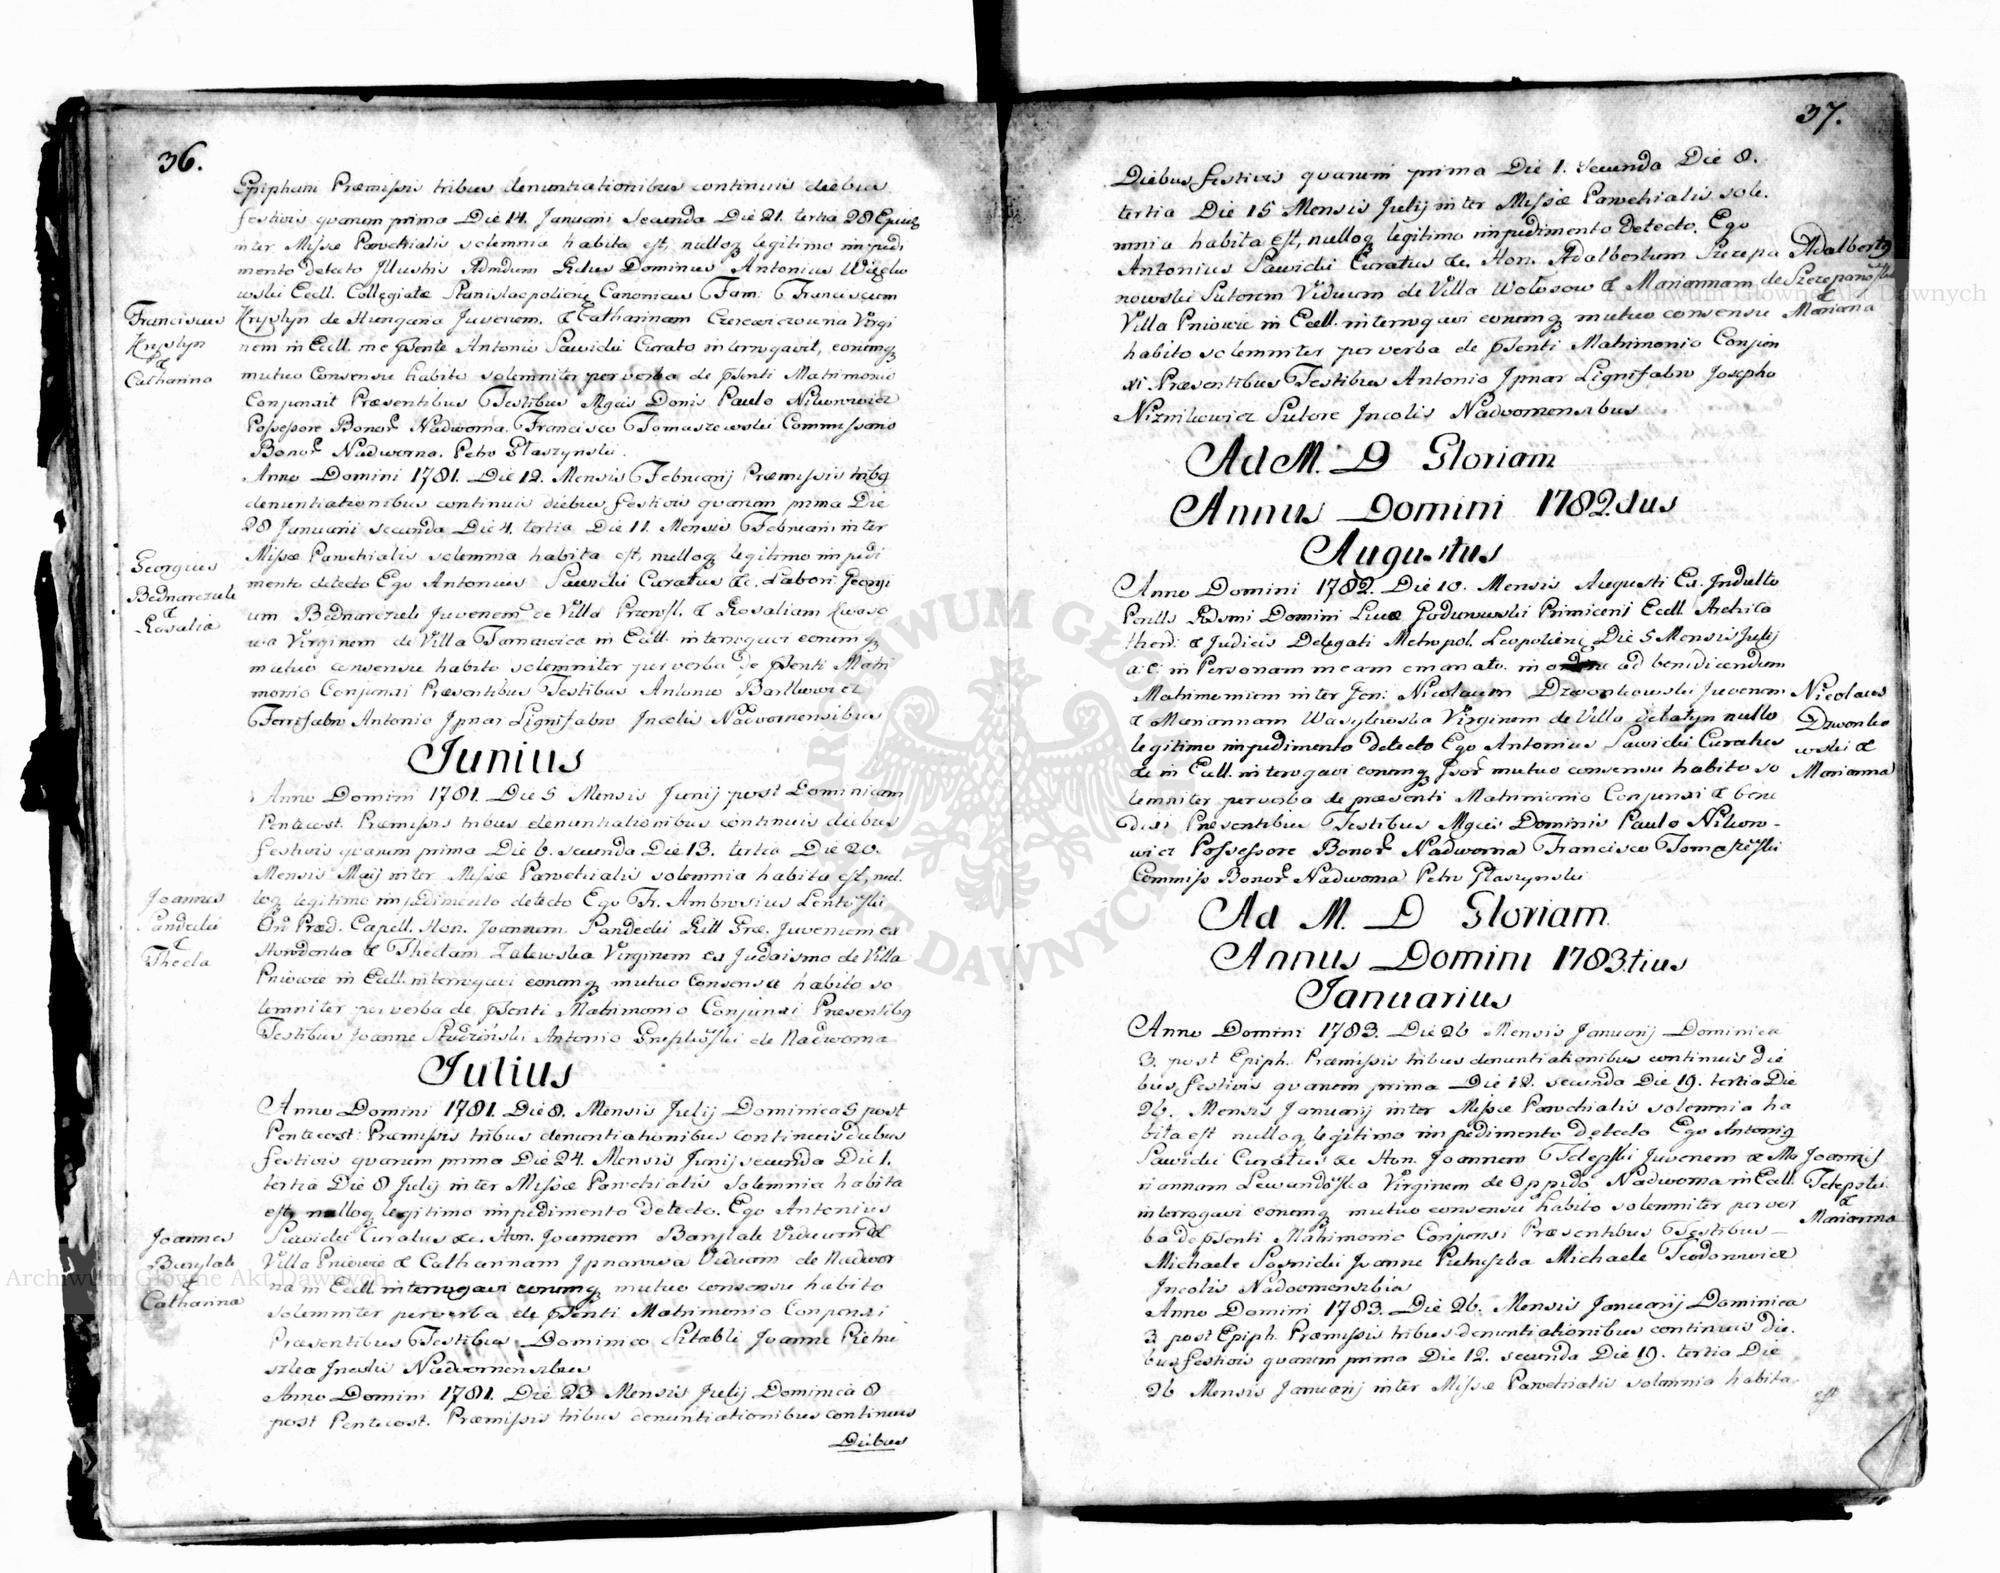 36.
Epiphani Præmissis tribus denuntiationibus continuis diebus
festivis quarum prima Die 14. Januarii Secunda Die 21. tertia 28 Ejusq
inter Missæ Parochialis solemnia habita est, nulloq legitimo impedi
mento detecto Illustris Admdum Rdus Dominus Antonius
wski Eccll. Collegiatæ Stanislaopoliens Canonicus Fam: Franciscum
Krystyn de Hungaria Juvenem. & Catharinam Virgi
nem in Eccll. me pſente Antonio Sawicki Curato interrogavit, eorumq
mutuo Consensu habito solemniter per verba de pſenti Matrimonio
Conjunxit Præsentibus Testibus Mgcis Donis Paulo Nikorowicz
Possessore Bonor Nadworna. Francisco Tomaszewski Commissario
Bonor Nadworna. Petro Głaszynski.
Franciscus
Krystyn
&
Catharina
Anno Domini 1781. Die 12. Mensis Februarij Præmissis tribq
denuntiationibus continuis diebus festivis quarum prima Die
28 Januarii secunda Die 4. tertia Die 11. Mensis Februarii inter
Missæ Parochialis solemnia habita est, nulloq legitimo impedi
mento detecto Ego Antonius Sawicki Curatus &c. Labor. Georgi
um Bednarczuk Juvenem de Villa & Rosaliam
wa Virginem de Villa Tarnawica in Eccll. interrogavi eorumq
mutuo consensu habito solemniter per verba de pſenti Matri
monio Conjunxi Præsentibus Testibus Antonio Bartkowicz
Ferrifabro Antonio Jpnar Lignifabro Incolis Nadwornensibus
Georgius
Bednarczuk
&
Rosalia
Junius
Anno Domini 1781. Die 5 Mensis Junij post Dominicam
Pentecost. Præmissis tribus denuntiationibus continuis diebus
festivis quarum prima Die 6. secunda Die 13. tertia Die 20.
Mensis Maij inter Missæ Parochialis solemnia habita est, nul.
loq legitimo impedimento detecto Ego Fr. Ambrosius
Ord Præd. Capell. Hon. Joannem Pandecki Ritt Græ. Juvenem ex
Horodenka & Theclam Zalewska Virginem ex Judaismo de Villa
Pniowie in Eccll. interrogavi eorumq mutuo Consensu habito so
lemniter per verba de pſenti Matrimonio Conjunxi Præsentibq
Testibus Joanne Studzinski Antonio de Nadworna
Joannes
Pandecki
&
Thecla
Julius
Anno Domini 1781. Die 8. Mensis Julij Dominica 5 post
Pentecost: Præmissis tribus denuntiationibus continuis diebus
festivis quarum prima Die 24. Mensis Junij secunda Die 1.
tertia Die 8 Julij inter Missæ Parochialis Solemnia habita
est, nulloq legitimo impedimento detecto. Ego Antonius
Sawicki Curatus &c. Hon. Joannem Barylak Viduum de
Villa Pniowie & Catharinam Jpnarowa Viduam de Nadwor
na in Eccll. interrogavi eorumq mutuo consensu habito
solemniter per verba de pſenti Matrimonio Conjunxi
Præsentibus Testibus Dominico Joanne Pietru
szka Incolis Nadwornensibus
Joannes
Barylak
&
Catharina
Anno Domini 1781. Die 23 Mensis Julij Dominica 8
post Pentecost. Præmissis tribus denuntiationibus continuis
Diebus
37.
Diebus festivis quarum prima Die 1. secunda Die 8.
tertia Die 15 Mensis Julij inter Missæ Parochialis sole.
mnia habita est, nulloq legitimo impedimento detecto. Ego
Antonius Sawicki Curatus &c. Hon. Adalbertum Szczepa
nowski Sutorem Viduum de Villa Wolosow & Mariannam de
Villa Pniowie in Eccll. interrogavi eorumq mutuo consensu
habito solemniter per verba de pſenti Matrimonio Conjun
xi Præsentibus Testibus Antonio Jpnar Lignifabro Josepho
Niznikowicz Sutore Incolis Nadwornensibus
Adalbertq
Szczepanowski
&
Mariana
Ad M. D Gloriam
Annus Domini 1782.dus
Augustus
Anno Domini 1782. Die 10. Mensis Augusti Ex Indulto
Perills Rdsmi Domini Lucæ Godurowski Primicerij Eccll. Archica
thedr: & Judicis Delegati Metropol. Leopoliens Die 5 Mensis Julij
a: c: in Personam meam emanato. in ordine ad benedicendum
Matrimonium inter Gen: Nicolaum Dzwonkowski Juvenem
& Mariannam Wasylewska Virginem de Villa Delatyn nullo
legitimo impedimento detecto Ego Antonius Sawicki Curatus
&c in Eccll. interrogavi eorumq pſor mutuo consensu habito so
lemniter per verba de præsenti Matrimonio Conjunxi & bene
dixi Præsentibus Testibus Mgcis Dominis Paulo Nikoro-
wicz Possessore Bonor Nadworna Francisco Tomaszewski
Commiss Bonor Nadworna Petro Głaszynski
Nicolaus
Dzwonko
wski &
Marianna
Ad M. D Gloriam
Annus Domini 1783.tius
Januarius
Anno Domini 1783. Die 26 Mensis Januarij Dominica
3. post Epiph. Præmissis tribus denuntiationibus continuis die
bus festivis quarum prima Die 12. secunda Die 19. tertia Die
26. Mensis Januarij inter Missæ Parochialis solemnia ha
bita est nulloq legitimo impedimento detecto Ego Antoniq
Sawicki Curatus &c Hon. Joannem Telepski Juvenem & Ma
riannam Lewandowska Virginem de Oppido Nadworna in Eccll.
interrogavi eorumq mutuo consensu habito solemniter per ver
ba de pſenti Matrimonio Conjunxi Præsentibus Testibus
Michaele Joanne Pietruszka Michaele Teodorowicz
Incolis Nadwornensibus
Joannes
Telepski
&
Marianna
Anno Domini 1783. Die 26. Mensis Januarij Dominica
3 post Epiph. Præmissis tribus denuntiationibus continuis die.
bus festivis quarum prima Die 12. secunda Die 19. tertia Die
26 Mensis Januarij inter Missæ Parochialis solemnia habita
est
Archiwum Główne Akt Dawnych
Archiwum Główne Akt Dawnych
ARCHIWUM GŁÓWNE AKT DAWNYCH